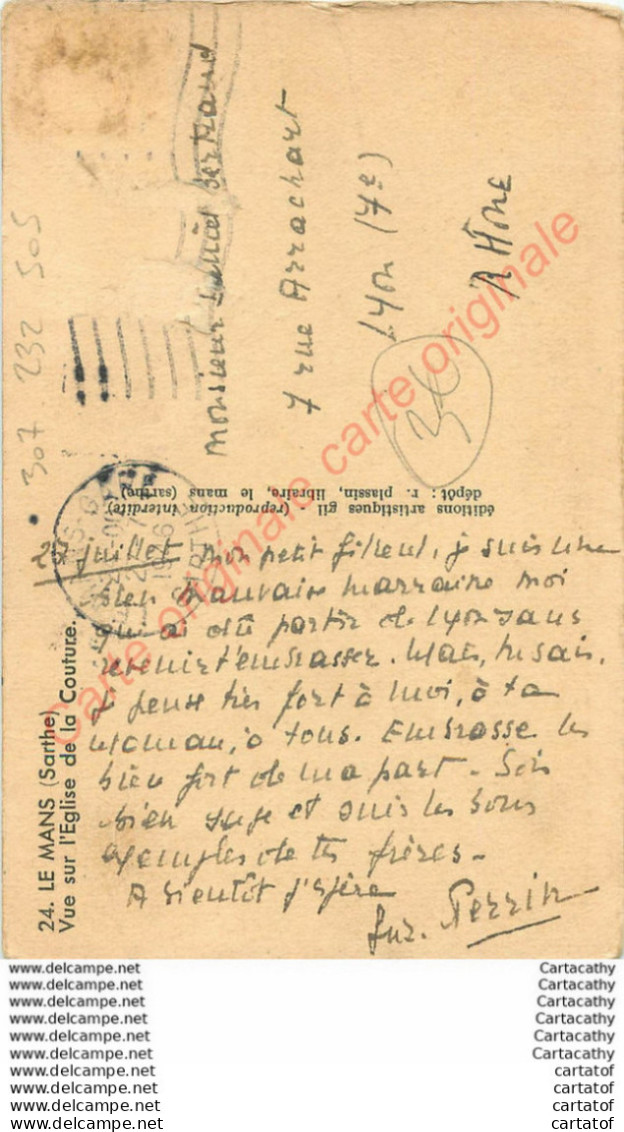 307 232 505
Monsieur Bertrand
7 rue Arrachart
Lyon (7e)
RHône
36
éditions artistiques gil (reproduction interdite)
dépôt : r. plassin, libraire, le mans (sarthe)
24. LE MANS (Sarthe)
Vue sur l'Eglise de la Couture.
juillet mon petit filleul, je suis une
bien mauvaise marraine moi
qui ai dû partir de Lyon sans
revenir t'embrasser. Mais, tu sais,
je pense très fort à toi, à ta
Maman, à tous. Embrasse les
bien fort de ma part. Sois
bien sage et suis les bons
exemples de tes frères.
A bientôt j'espère
Perrin
Carte originale carte originale
www.delcampe.net Cartacathy
www.delcampe.net Cartacathy
www.delcampe.net Cartacathy
www.delcampe.net Cartacathy
www.delcampe.net Cartacathy
www.delcampe.net Cartacathy
www.delcampe.net cartatof
www.delcampe.net cartatof
www.delcampe.net cartatof
www.delcampe.net cartatof